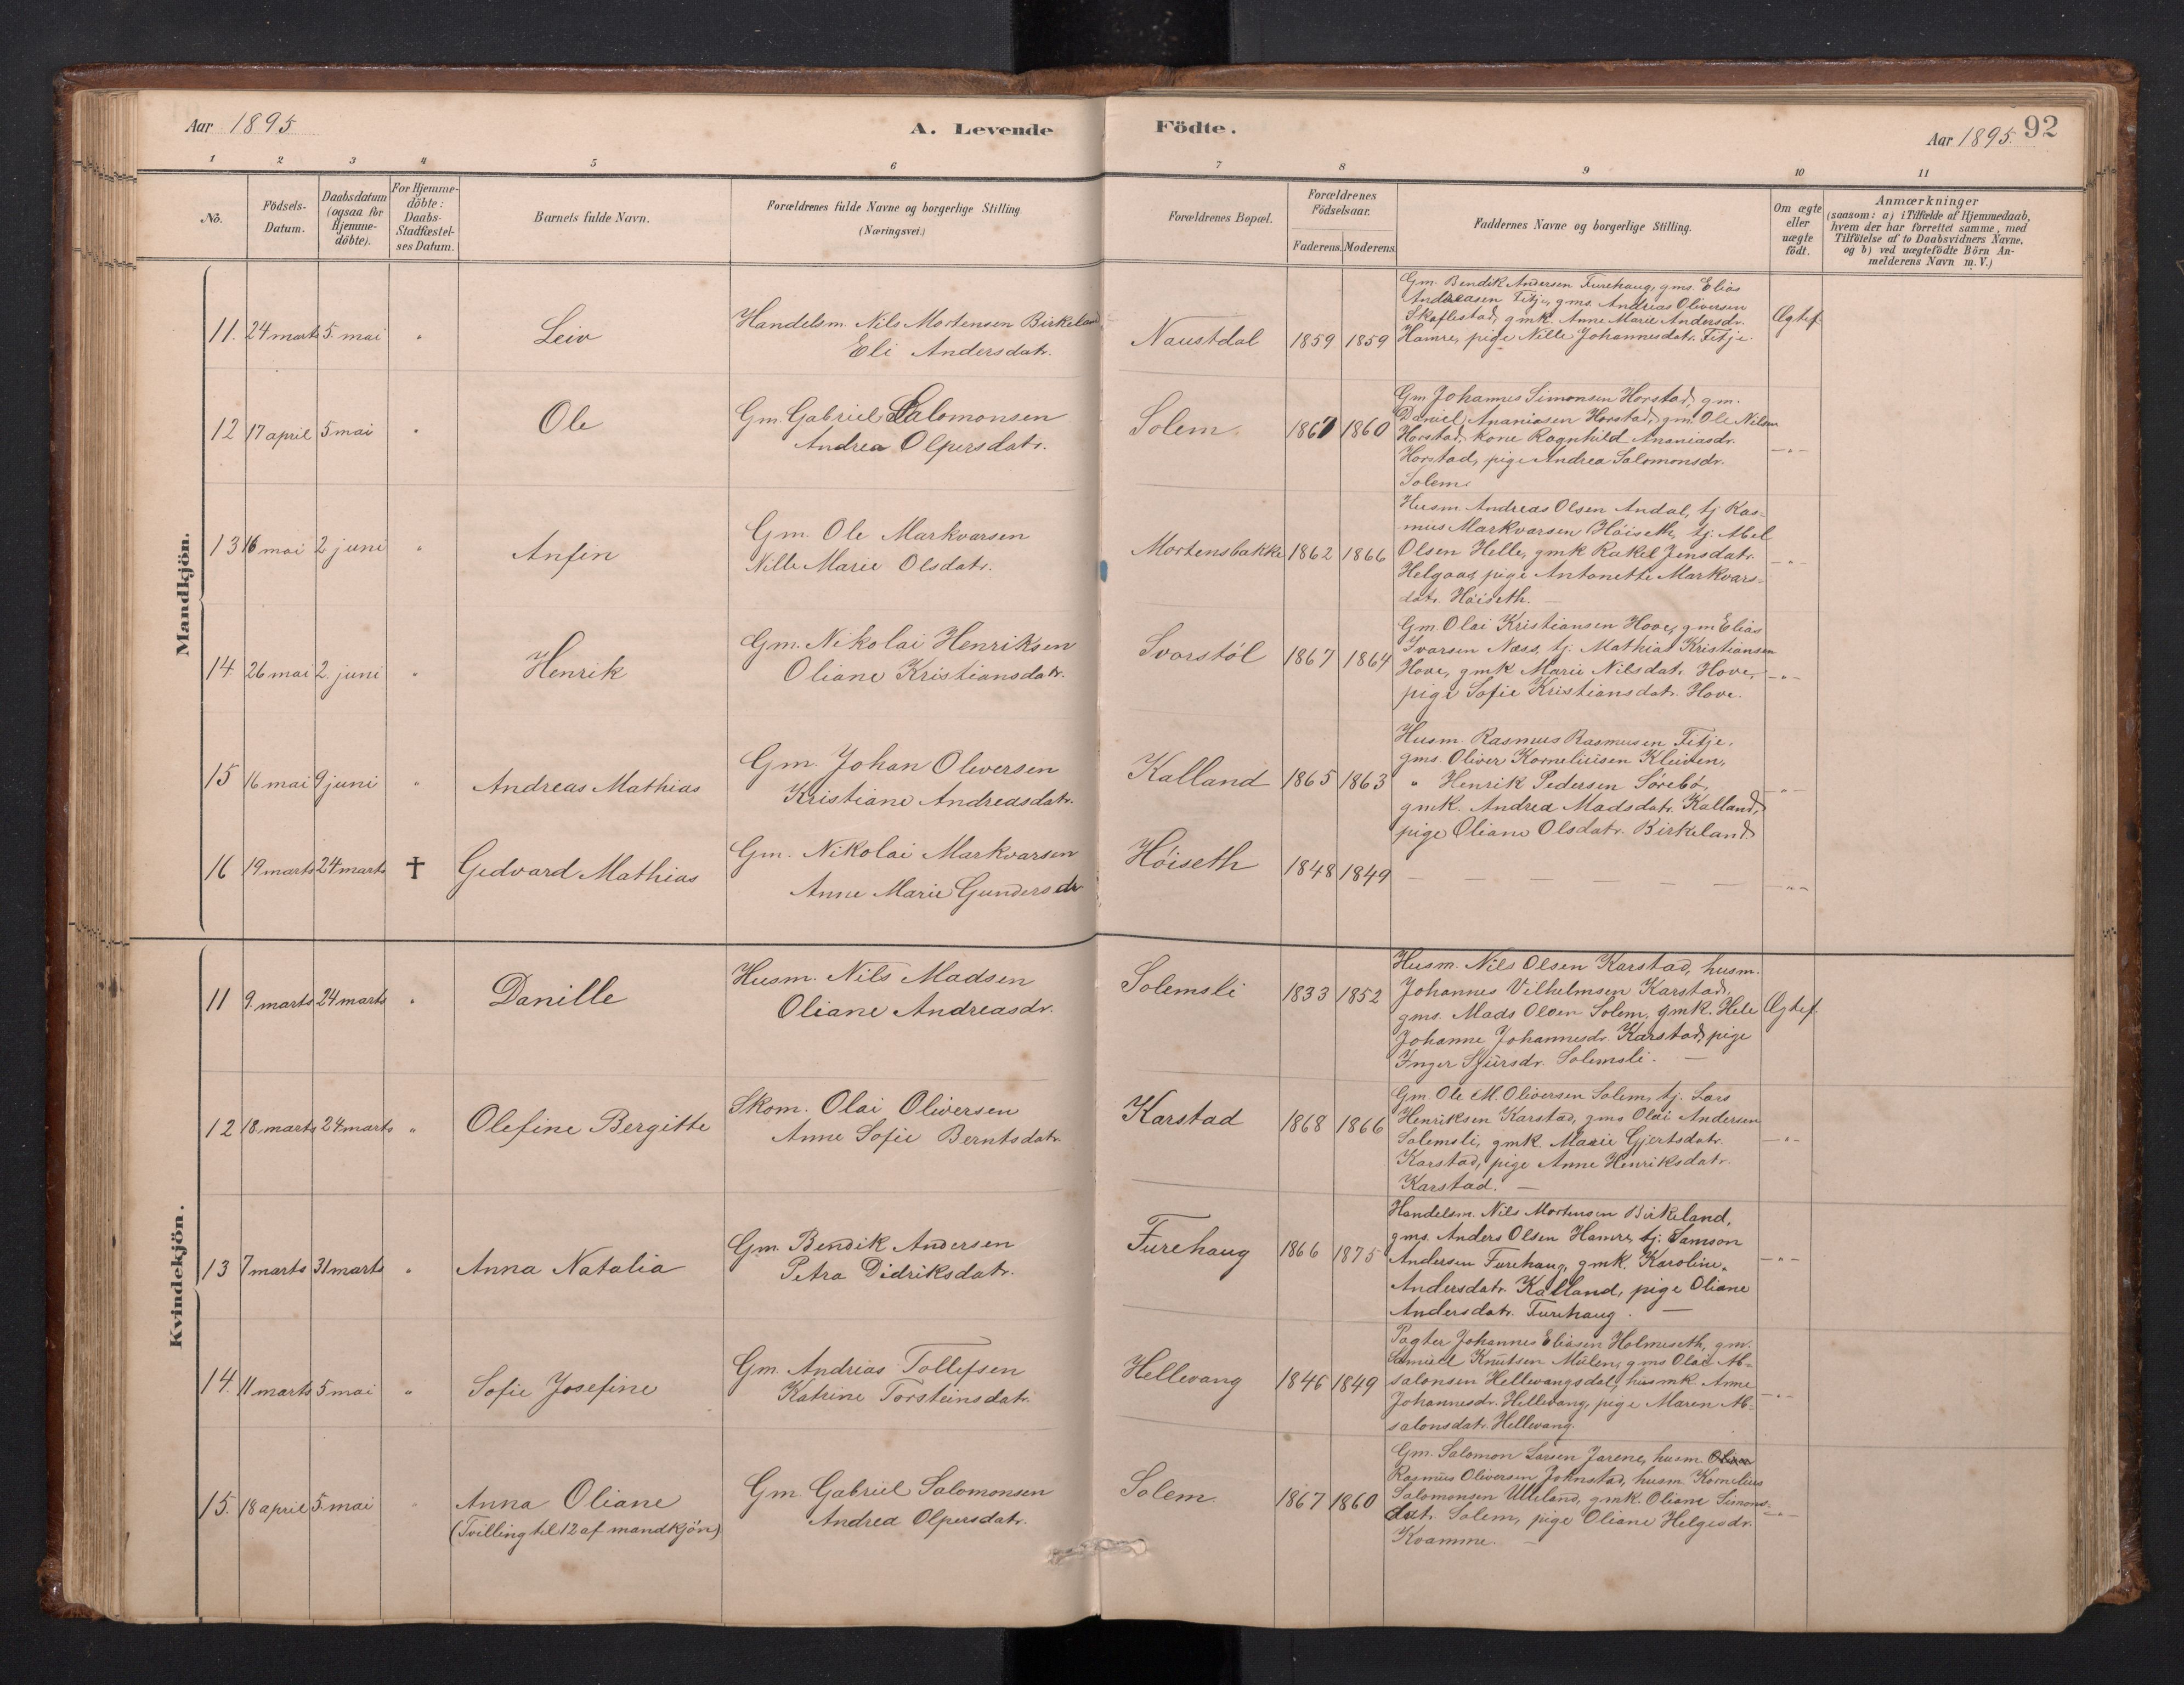 Aar 1895.
A. Levende Födte.
Aar 1895. 92
1 2 3 4 5 6 7 8 9 10 11
No.
Födsels-
Datum.
Daabsdatum
(ogsaa for
Hjemme-
döbte).
For Hjemme-
döbte:
Daabs-
Stadfæstel-
ses Datum.
Barnets fulde Navn.
Forældrenes fulde Navne og borgerlige Stilling
(Næringsvei.)
Forældrenes Bopæl.
Forældrenes
Födselsaar.
Faderens. Moderens.
Faddernes Navne og borgerlige Stilling.
Om ægte
eller
uægte
födt.
Anmærkninger
(saasom: a) i Tilfælde af Hjemmedaab,
hvem der har forrettet samme, med
Tilföielse af to Daabsvidners Navne.
og b) ved uægtefödte Börn An-
melderens Navn m. V.)
Mandkjön.
11. 24 marts 5. mai " Leiv
Handelsm. Nils Mortensen Birkeland
Eli Andersdatr.
Naustdal 1859 1859
Gm. Bendik Andersen Furehaug, gms. Elias
Andreasen Fitje, gms. Andreas Oliversen
Skaflestad, gmk. Anne Marie Andersdr.
Hamre, pige Nille Johannesdatr. Fitje.
Ægtef.
12 17 april 5 mai " Ole
Gm. Gabriel Salomonsen
Andrea Olpersdatr.
Solem. 1867 1860
Gm Johannes Simonsen Horstad, gm.
Daniel Ananiasen Horstad, gm. Ole Nilsen
Horstad, kone Ragnhild Ananiasdr.
Horstad, pige Andrea Salomonsdr.
Solem.
—"—
13 16 mai 2 juni " Anfin
Gm. Ole Markvarsen
Nille Marie Olsdatr.
Mortensbakke 1862 1866
Husm Andreas Olsen Andal, tj Ras-
mus Markvarsen Höiseth, tj. Abel
Olsen Helle, gmk Rakel Jensdatr.
Helgaas, pige Antonette Markvars-
datr. Höiseth. —
—"—
14. 26 mai 2. juni " Henrik
Gm. Nikolai Henriksen
Oliane Kristiansdatr.
Svorstöl 1867 1864
Gm. Olai Kristiansen Hove, gm Elias
Ivarsen Næss, tj. Mathias Kristiansen
Hove, gmk Marie Nilsdatr. Hove,
pige Sofie Kristiansdatr. Hove.
—"—
15 16 mai 9 juni " Andreas Mathias
Gm. Johan Oliversen
Kristiane Andreasdatr.
Kalland 1865 1863
Husm. Rasmus Rasmusen Fitje,
gms. Oliver Korneliusen Kleiven,
" Henrik Pedersen Sörebö,
gmk. Andrea Madsdatr. Kalland,
pige Oliane Olsdatr. Birkeland
—"—
16 19 marts 24 marts ✝ Gedvard Mathias
Gm. Nikolai Markvarsen
Anne Marie Gundersdr
Höiseth 1848 1849
— — — — — —
—"—
Kvindekjön.
11 9. marts 24 marts " Danille
Husm. Nils Madsen
Oliane Andreasdr.
Solemsli 1833 1852
Husm. Nils Olsen Karstad, husm.
Johannes Vilhelmsen Karstad,
gms. Mads Olsen Solem, gmk. Hele
Johanne Johannesdr. Karstad, pige
Inger Sjursdr. Solemsli. —
Ægtef.
12 18 marts 24 marts " Olefine Bergitte
Skom. Olai Oliversen
Anne Sofie Berntsdatr.
Karstad 1868 1866
Gm. Ole M. Oliversen Solem, tj. Lars
Henriksen Karstad, gms Olai Andersen
Solemsli, gmk. Marie Gjertsdatr.
Karstad, pige Anne Henriksdatr.
Karstad. —
—"—
13 7 marts 31 marts " Anna Natalia
Gm. Bendik Andersen
Petra Didriksdatr.
Furehaug 1866 1875
Handelsm. Nils Mortensen Birkeland,
gms. Anders Olsen Hamre, tj. Samson
Andersen Furehaug, gmk. Karoline
Andersdatr. Kalland, pige Oliane
Andersdatr. Furehaug. —
—"—
14. 11 marts 5 mai " Sofie Josefine
Gm. Andrias Tollefsen
Katrine Torsteinsdatr.
Hellevang 1846 1849
Pagter Johannes Eliasen Holmeseth, gm.
Samuel Knutsen Mulen, gms Olai Ab-
salonsen Hellevangsdal, husmk. Anne
Johannesdr. Hellevang, pige Maren Ab-
salonsdatr. Hellevang.
—"—
15. 18 april 5 mai " Anna Oliane
(Tvilling til 12 af mandkjön)
Gm. Gabriel Salomonsen
Andrea Olpersdatr.
Solem. 1867 1860
Gm. Salomon Larsen Jarene, husm.
Rasmus Oliversen Johnstad, husm Kornelius
Salomonsen Ulleland, gmk. Oliane Simons-
datr. Solem, pige Oliane Helgesdr.
Kvamme. —
—"—